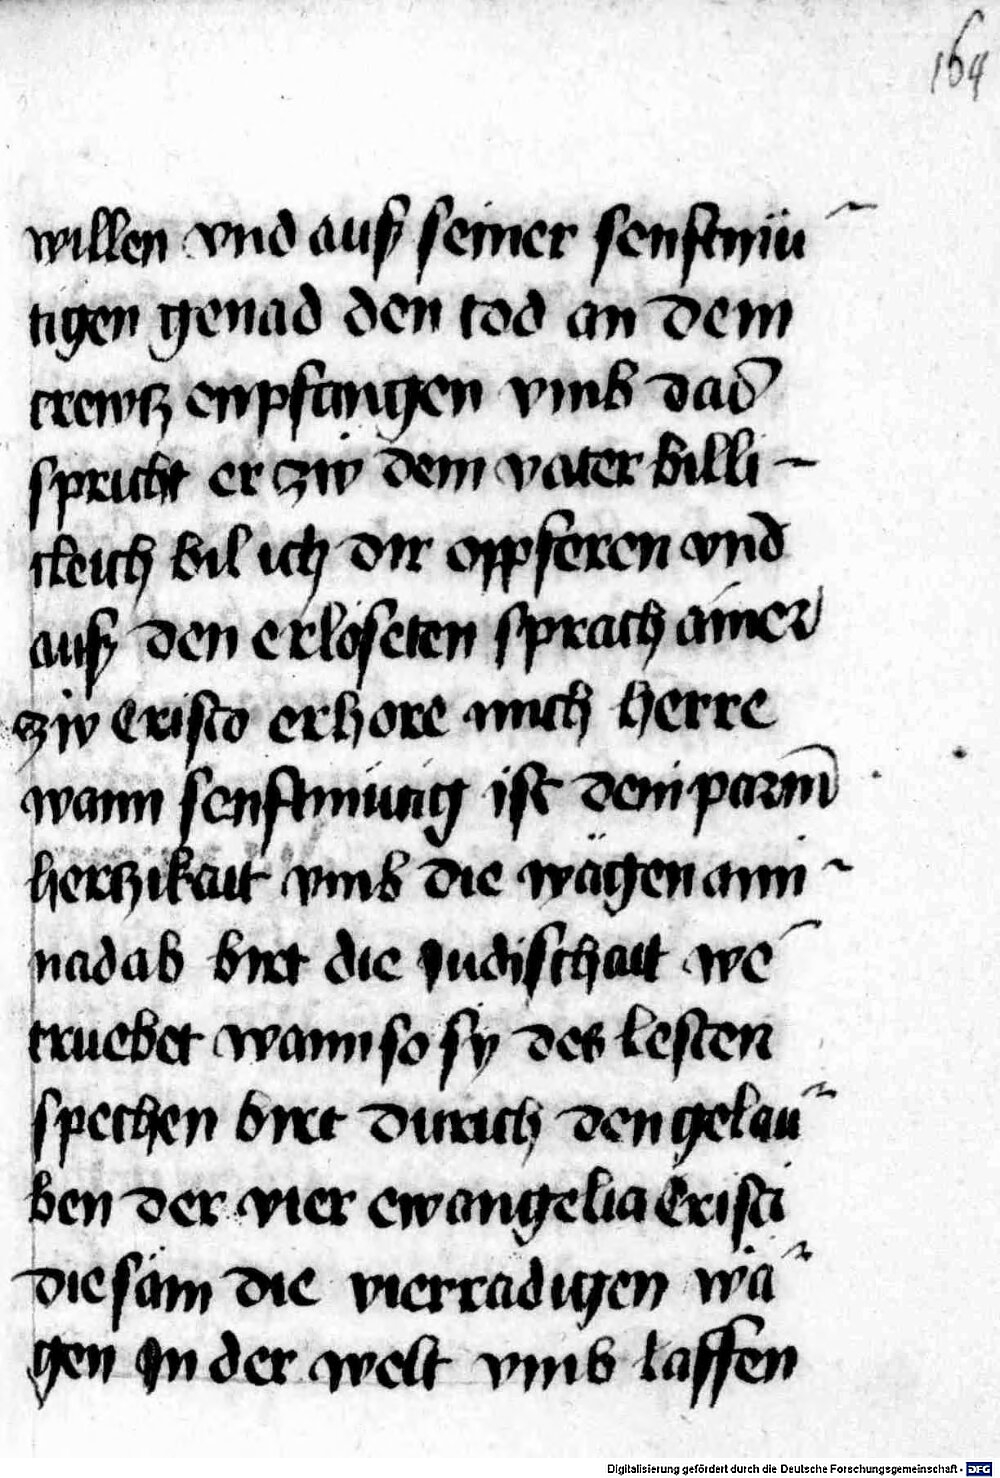 164
willen vnd auß seiner senftmü
tigen genad den tod an dem
crewtz enpfangen vmb daß
spricht er zw dem vater billi
cleich bil ich dir opferen vnd
auß den erlöseten sprach ainer
zw Cristo erhore mich herre
wann senftmütig ist dein parm̄
hertzikait vmb die wägen ami
nadab birt die Judischait we
truebet wann so sy des lesten
spechen birt durich den gelau
ben der vier ewangelia Cristi
die sam die vierradigen wä
gen In der welt vmb lassen
Digitalisierung gefördert durch die Deutsche Forschungsgemeinschaft - DFG